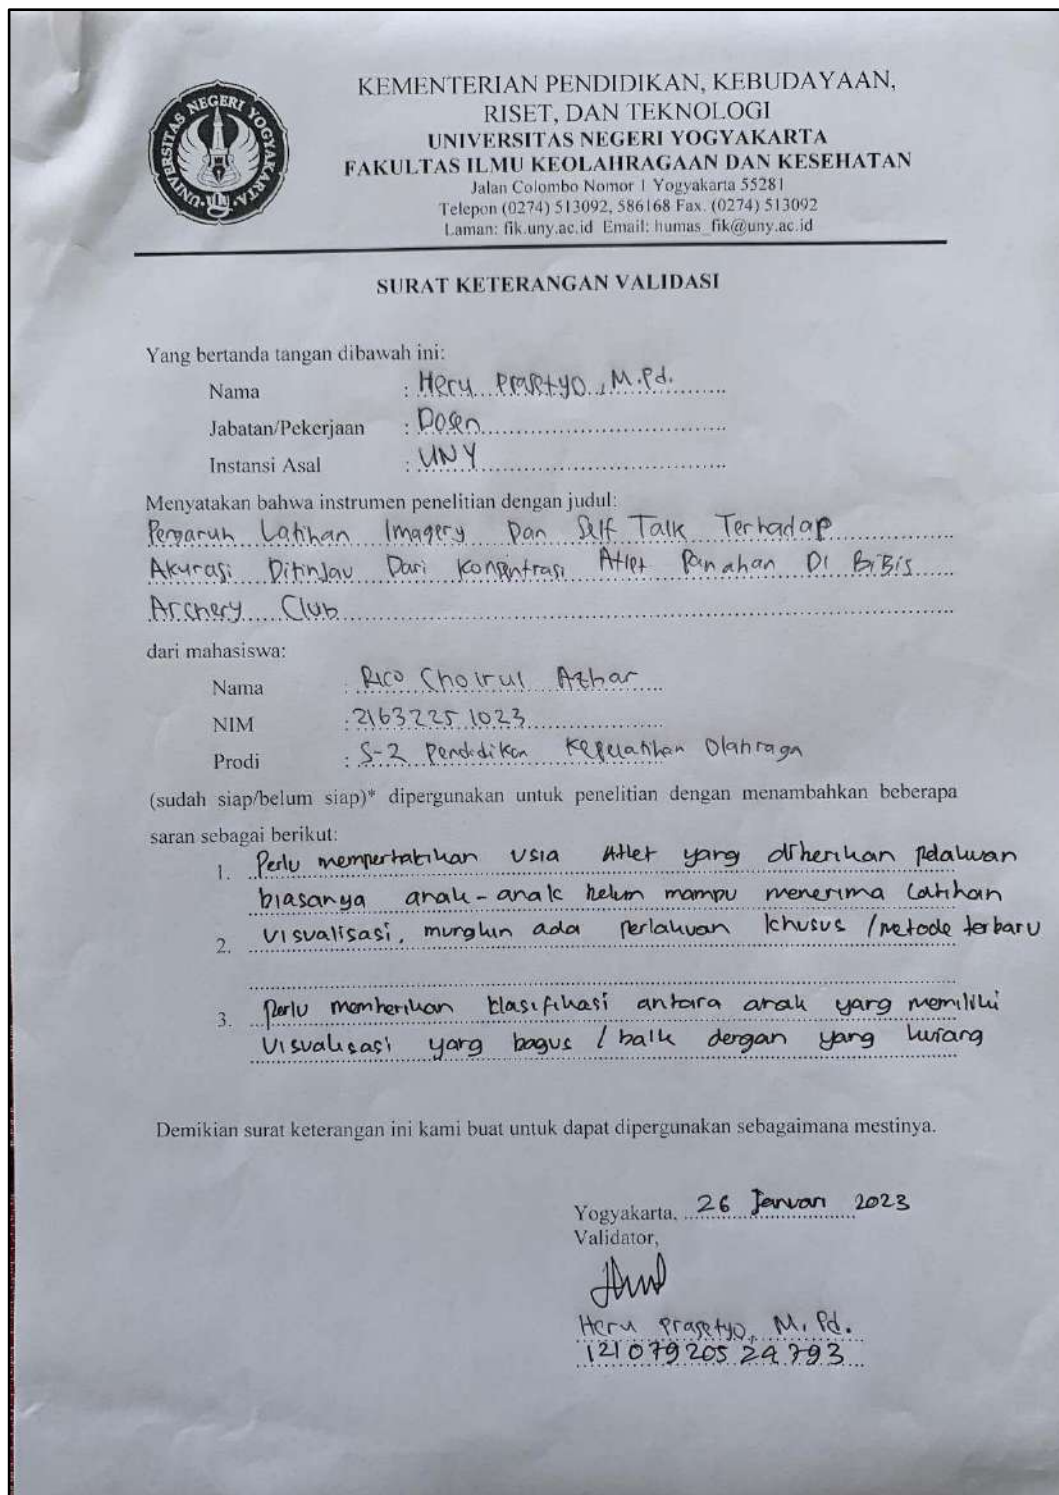 UNIVERSITAS NEGERI YOGYAKARTA
KEMENTERIAN PENDIDIKAN, KEBUDAYAAN,
RISET, DAN TEKNOLOGI
UNIVERSITAS NEGERI YOGYAKARTA
FAKULTAS ILMU KEOLAHRAGAAN DAN KESEHATAN
Jalan Colombo Nomor 1 Yogyakarta 55281
Telepon (0274) 513092, 586168 Fax. (0274) 513092
Laman: fik.uny.ac.id Email: humas_fik@uny.ac.id
SURAT KETERANGAN VALIDASI
Yang bertanda tangan dibawah ini:
Nama : Heru Prasetyo, M.Pd.
Jabatan/Pekerjaan : Dosen
Instansi Asal : UNY
Menyatakan bahwa instrumen penelitian dengan judul:
Pengaruh Latihan Imagery Dan Self Talk Terhadap
Akurasi Ditinjau Dari Konsentrasi Atlet Panahan Di BiBis
Archery Club
dari mahasiswa:
Nama : Rico Choirul Azhar
NIM : 21632251023
Prodi : S-2 Pendidikan Kepelatihan Olahraga
(sudah siap/belum siap)* dipergunakan untuk penelitian dengan menambahkan beberapa
saran sebagai berikut:
1. Perlu memperhatikan usia Atlet yang diberikan pelakuan
biasanya anak-anak belum mampu menerima latihan
2. visualisasi, mungkin ada perlakuan khusus / metode terbaru
3. Perlu memberikan klasifikasi antara anak yang memiliki
visualisasi yang bagus / baik dengan yang kurang
Demikian surat keterangan ini kami buat untuk dapat dipergunakan sebagaimana mestinya.
Yogyakarta, 26 Januari 2023
Validator,
Heru Prasetyo, M.Pd.
12107920524793